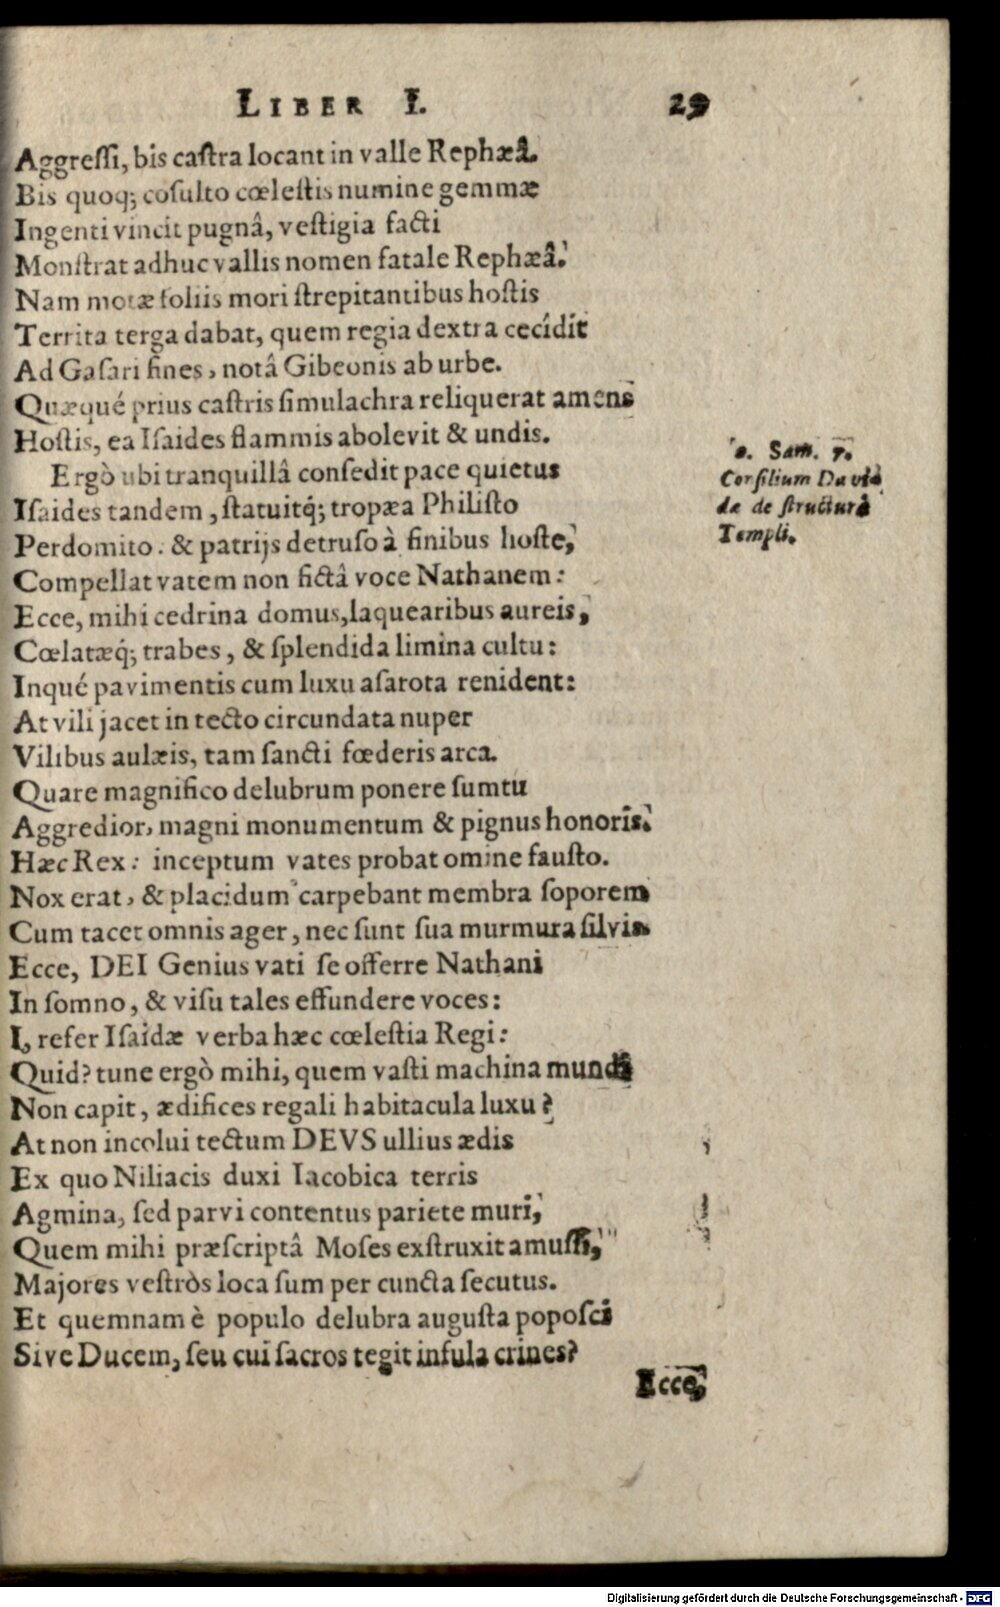 LIBER I. 29
Aggreſſi, bis caſtra locant in valle Rephæâ.
Bis quoq; cõſulto cœleſtis numine gemmæ
Ingenti vincit pugnâ, veſtigia facti
Monſtrat adhuc vallis nomen fatale Rephæâ.
Nam motæ foliis mori ſtrepitantibus hoſtis
Territa terga dabat, quem regia dextra cecîdit
Ad Gaſari fines, notâ Gibeonis ab urbe.
Quæqué prius caſtris ſimulachra reliquerat amens
Hoſtis, ea Iſaides flammis abolevit & undis.
Ergò ubi tranquillâ conſedit pace quietus
Iſaides tandem, ſtatuitq́; tropæa Philiſto
Perdomito. & patrijs detruſo à finibus hoſte,
Compellat vatem non fictâ voce Nathanem:
Ecce, mihi cedrina domus, laquearibus aureis,
Cœlatæq́; trabes, & ſplendida limina cultu:
Inqué pavimentis cum luxu aſarota renident:
At vili jacet in tecto circundata nuper
Vilibus aulæis, tam ſancti fœderis arca.
Quare magnifico delubrum ponere ſumtu
Aggredior, magni monumentum & pignus honoris.
Hæc Rex: inceptum vates probat omine fauſto.
Nox erat, & placidum carpebant membra ſoporem
Cum tacet omnis ager, nec ſunt ſua murmura ſilvis.
Ecce, DEI Genius vati ſe offerre Nathani
In ſomno, & viſu tales effundere voces:
I, refer Iſaidæ verba hæc cœleſtia Regi:
Quid? tune ergò mihi, quem vaſti machina mundi
Non capit, ædifices regali habitacula luxu?
At non incolui tectum DEVS ullius ædis
Ex quo Niliacis duxi Iacobica terris
Agmina, ſed parvi contentus pariete muri,
Quem mihi præſcriptâ Moſes exſtruxit amuſſi,
Majores veſtròs loca ſum per cuncta ſecutus.
Et quemnam è populo delubra auguſta popoſci
Sive Ducem, ſeu cui ſacros tegit infula crines?
Ecce,
2. Sam. 7.
Conſilium Davi-
dæ de ſtructurâ
Templi.
Digitalisierung gefördert durch die Deutsche Forschungsgemeinschaft - DFG